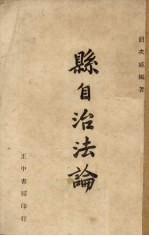 胡次威編著
縣自治法論
正中書局印行